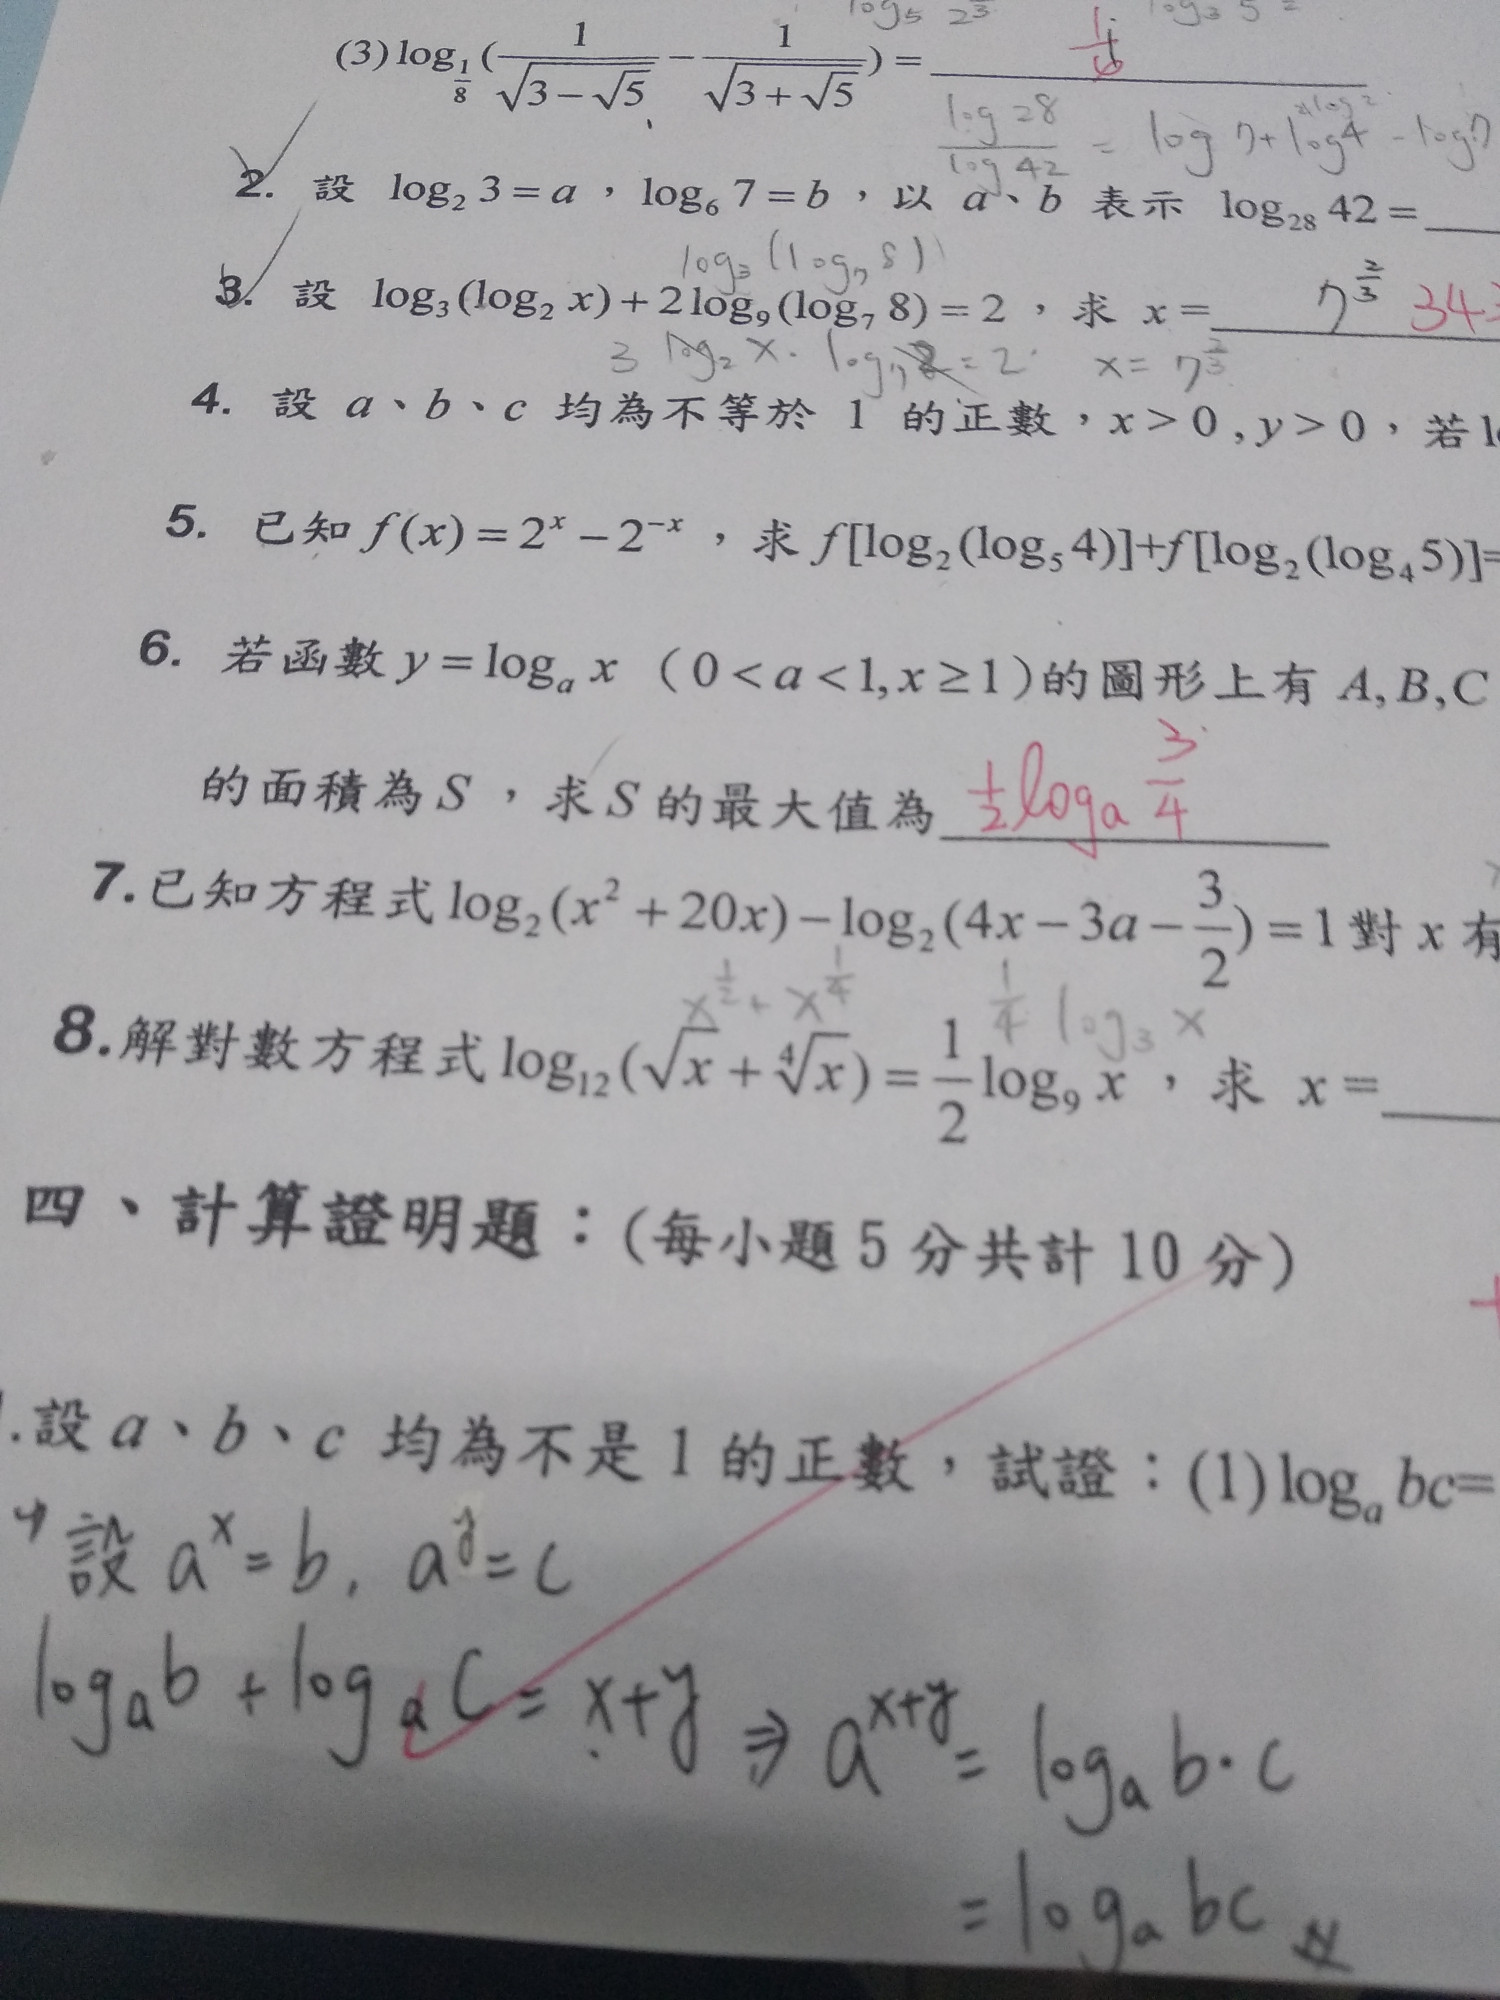 log₅ 2^(2/3) log₃ 5 =
(3) log_(1/8) (1/√(3−√5) − 1/√(3+√5)) = 1/6
log 28 / log 42 = log 7 + log 4 − log 7
2. 設 log₂ 3 = a，log₆ 7 = b，以 a、b 表示 log₂₈ 42 =
log₃ (log₇ 8)
3. 設 log₃(log₂ x) + 2log₉(log₇ 8) = 2，求 x = 7^(2/3) 343
3 log₂ x · log₇ 8 = 2 x = 7^(2/3)
4. 設 a、b、c 均為不等於 1 的正數，x > 0 , y > 0，若
5. 已知 f(x) = 2^x − 2^(−x)，求 f[log₂(log₅ 4)]+f[log₂(log₄ 5)]=
6. 若函數 y = logₐ x （0 < a < 1, x ≥ 1）的圖形上有 A, B, C
的面積為 S，求 S 的最大值為 ½ logₐ 3/4
7. 已知方程式 log₂(x² + 20x) − log₂(4x − 3a − 3/2) = 1 對 x 有
x^(1/2) + x^(1/4) 1/4 log₃ x
8. 解對數方程式 log₁₂(√x + ∜x) = 1/2 log₉ x，求 x =
四、計算證明題：(每小題 5 分共計 10 分)
.設 a、b、c 均為不是 1 的正數，試證：(1) logₐ bc=
設 a^x = b, a^y = c
logₐ b + logₐ c = x+y ⇒ a^(x+y) = logₐ b·c
= logₐ bc